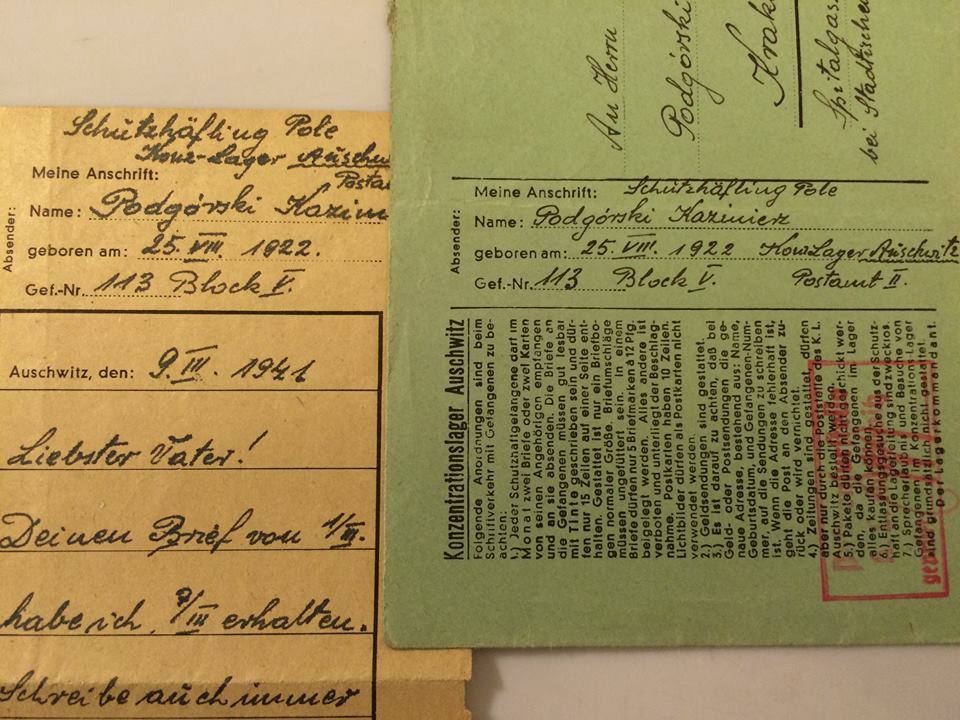 Schutzhäfling Pole
Konz-Lager Auschw
Meine Anschrift: Postam
Absender:
Name: Podgórski Kazim
geboren am: 25. VIII. 1922.
Gef.-Nr. 113 Block V.
Auschwitz, den: 9. III. 1941
Liebster Vater!
Deinen Brief von 1/III.
habe ich 7/III erhalten.
Schreibe auch immer
An Herrn
Podgórski
Krak
Spitalgas
bei Städtischen
Absender:
Meine Anschrift: Schutzhäfling Pole
Name: Podgórski Kazimierz
geboren am: 25. VIII. 1922 Konz Lager Auschwitz
Gef.-Nr. 113 Block V. Postamt II.
Konzentrationslager Auschwitz
Folgende Anordnungen sind beim
Schriftverkehr mit Gefangenen zu be-
achten:
1.) Jeder Schutzhaftgefangene darf im
Monat zwei Briefe oder zwei Karten
von seinen Angehörigen empfangen
und an sie absenden. Die Briefe an
die Gefangenen müssen gut lesbar
mit Tinte geschrieben sein und dür-
fen nur 15 Zeilen auf einer Seite ent-
halten. Gestattet ist nur ein Briefbo-
gen normaler Größe. Briefumschläge
müssen ungefüttert sein. In einem
Briefe dürfen nur 5 Briefmarken à 12 Pfg.
beigelegt werden. Alles andere ist
verboten und unterliegt der Beschlag-
nahme. Postkarten haben 10 Zeilen.
Lichtbilder dürfen als Postkarten nicht
verwendet werden.
2.) Geldsendungen sind gestattet.
3.) Es ist darauf zu achten, daß bei
Geld- oder Postsendungen die ge-
naue Adresse, bestehend aus: Name,
Geburtsdatum, und Gefangenen-Num-
mer, auf die Sendungen zu schreiben
ist. Wenn die Adresse fehlerhaft ist,
geht die Post an den Absender zu-
rück oder wird vernichtet.
4.) Zeitungen sind gestattet, dürfen
aber nur durch die Poststelle des K. L.
Auschwitz bestellt werden.
5.) Pakete dürfen nicht geschickt wer-
den, da die Gefangenen im Lager
alles kaufen können.
6.) Entlassungsgesuche aus der Schutz-
haft an die Lagerleitung sind zwecklos.
7.) Sprecherlaubnis und Besuche von
Gefangenen im Konzentrations-Lager
sind grundsätzlich nicht gestattet.
Der Lagerkommandant.